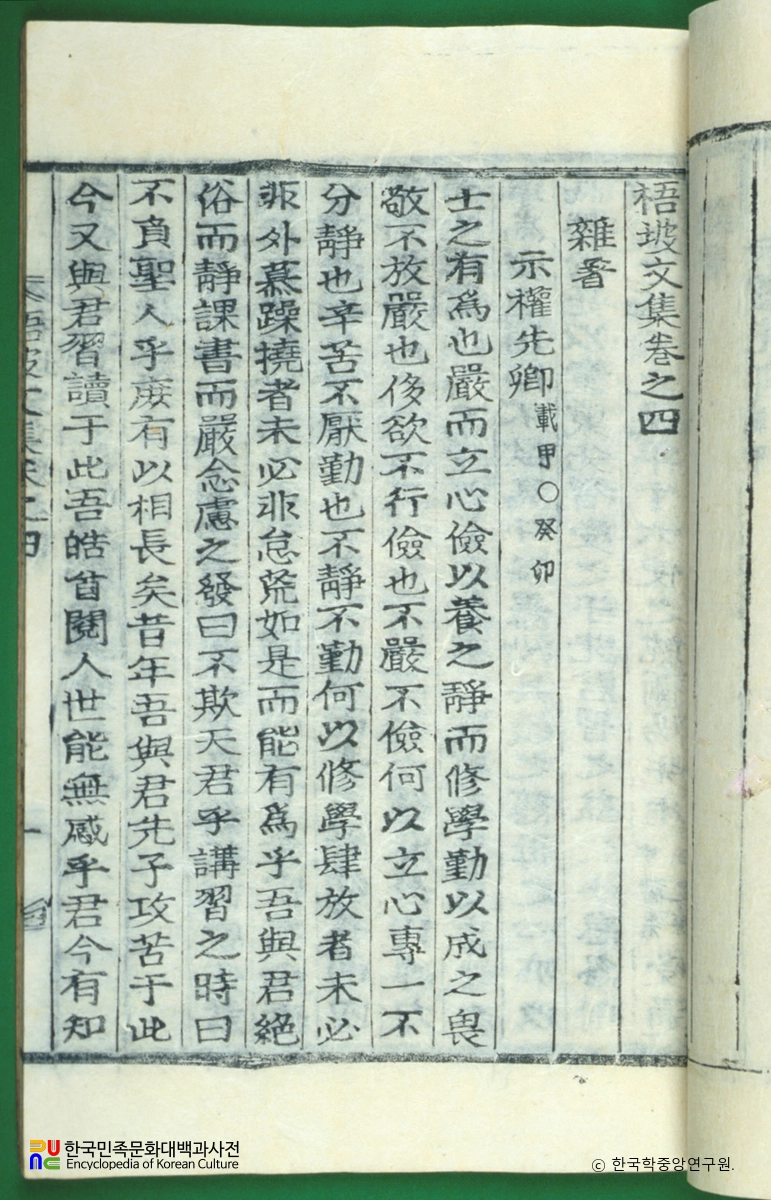 梧坡文集卷之四
雜著
示權先卿載甲○癸卯
士之有爲也嚴而立心儉以養之靜而修學勤以成之畏
敬不放嚴也侈欲不行儉也不嚴不儉何以立心專一不
分靜也辛苦不厭勤也不靜不勤何以修學肆放者未必
非外慕躁撓者未必非怠荒如是而能有爲乎吾與君絕
俗而靜課書而嚴念慮之發曰不欺天君乎講習之時曰
不負聖人乎庶有以相長矣昔年吾與君先子攻苦于此
今又與君習讀于此吾皓首閱人世能無感乎君今有知
梧坡文集卷之四
一
한국민족문화대백과사전
Encyclopedia of Korean Culture
© 한국학중앙연구원.